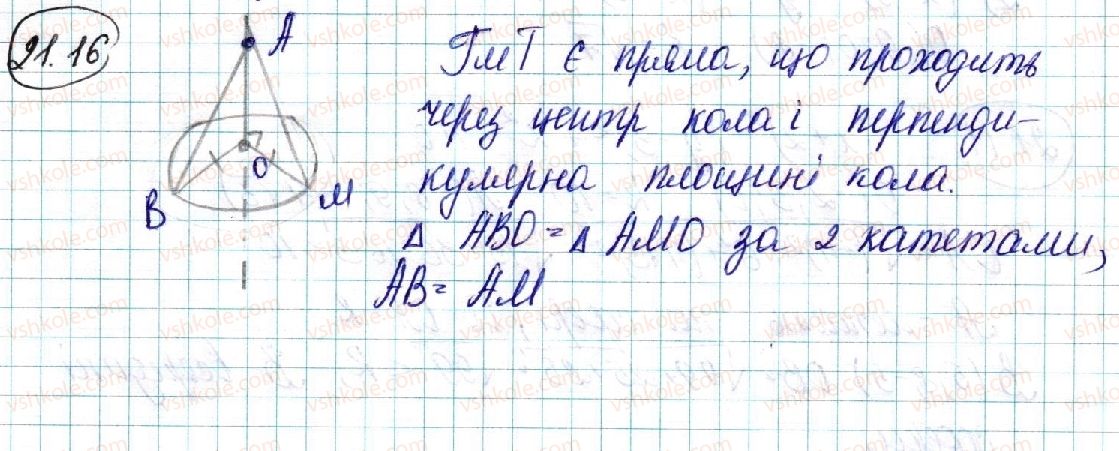 21.16
A
ГМТ є пряма, що проходить
через центр кола і перпенди-
кулярна площині кола.
O
B
M
Δ ABO = Δ AMO за 2 катетами,
AB = AM